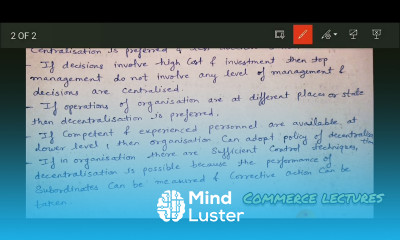 2 OF 2
Centralisation is preferred &
- If decisions involve high cost & investment then top
management do not involve any level of management &
decisions are centralised.
- If operations of organisation are at different places or state
then decentralisation is preferred.
- If Competent & experienced personnel are available at
lower level, then organisation can adopt policy of decentralisa
- If in organisation there are sufficient control techniques, then
decentralisation is possible because the performance of
Subordinates can be measured & corrective action can be
taken.
Mind
Luster
COMMERCE LECTURES